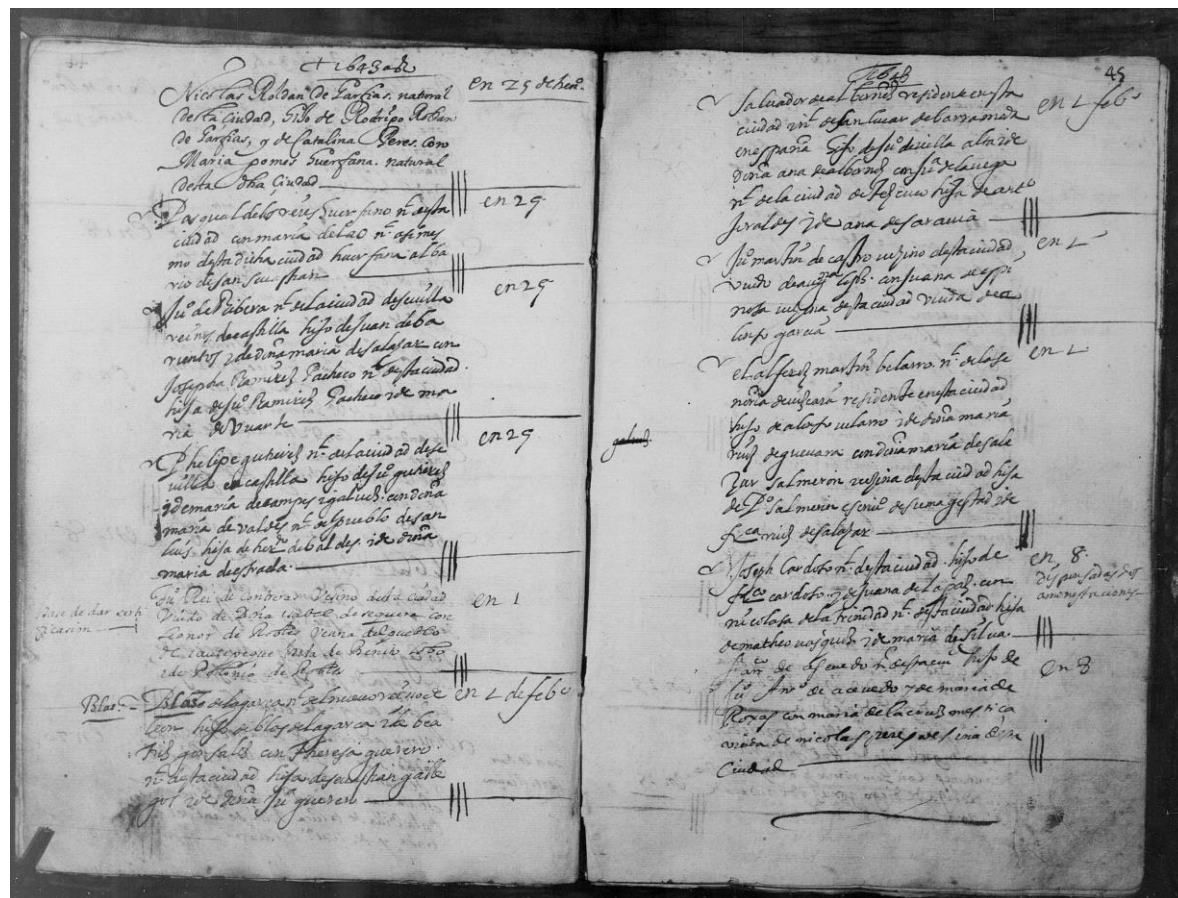 1643 as
Nicolas Roldan de Garfias. natural
desta Ciudad, Hijo de Rodrigo Roldan
de Garfias, y de Catalina Peres. Con
Maria gomes huerfana. natural
desta dha Ciudad
en 29 de hen.º
Pasqual de los reies huerfano n.l desta
ciudad con maria de n.l asimes
mo desta dicha ciudad huerfana al ba
rio de san seuastian
en 29
Ju.º de Ribera n.l de la ciudad de seuilla
reinos de castilla hijo de Juan de ba
rientos i de doña maria de salasar con
Josepha Ramires Pacheco n.l desta ciudad.
hija de Ju.º Ramires Pacheco i de ma
ria de Vuarte
en 29
Phelipe gutierres n.l de la ciudad de se
uilla en castilla hijo de Ju.º gutierres
i de maria de campos i galues. con doña
maria de valdes n.l del pueblo de san
luis. hija de her.do de baldes. i de doña
maria de estrada.
en 29
Vesino desta ciudad
Viudo de Doña isabel de seguera con
Leonor de Robles Vesina del pueblo
hija de Benito
i de Polonia de Robles
en 1
Blas.
Blas de la garça n.l del nueuo reino de
leon hijo de blas de la garça i de bea
tris gonsales con Theresa guerero.
n.l desta ciudad hija de seuastian galle
gos i de doña Ju.ª guerero
en 1 de feb.º
1643
45
Saluador de albornos residente en esta
ciudad n.l de san lucar de barrameda
en españa hijo de Ju.º de uilla alba i de
doña ana de albornos con Ju.ª de la uega
n.l de la ciudad de tescuco hija de ant.º
Jiraldes i de ana de sarauia
en 1 feb.º
Ju.º martin de castro uesino desta ciudad
viudo de con Juana de espi
nosa uesina desta ciudad viuda de
garcia
en 1
el alferes martin belarro. n.l de la se
ñoria de viscaia residente en esta ciudad
hijo de uilarro i de doña maria
ruis de gueuara con doña maria de sala
zar salmeron vesina desta ciudad hija
de P.º salmeron escriu.º de su magestad i de
fr.ca ruis de salasar.
en 1
galues.
Joseph Cardoso n.l desta ciudad. hijo de
fr.co cardoso. y de Juana de con
nicolasa de la trinidad n.l desta ciudad hija
de matheo uasques i de maria de silua.
en 8.
dispensados dos
amonestaciones
de aseuedo n.l hijo de
Ju.º de aceuedo y de maria de
Roxas con maria de la crus mestica
viuda de nicolas peres
Ciudad
en 8